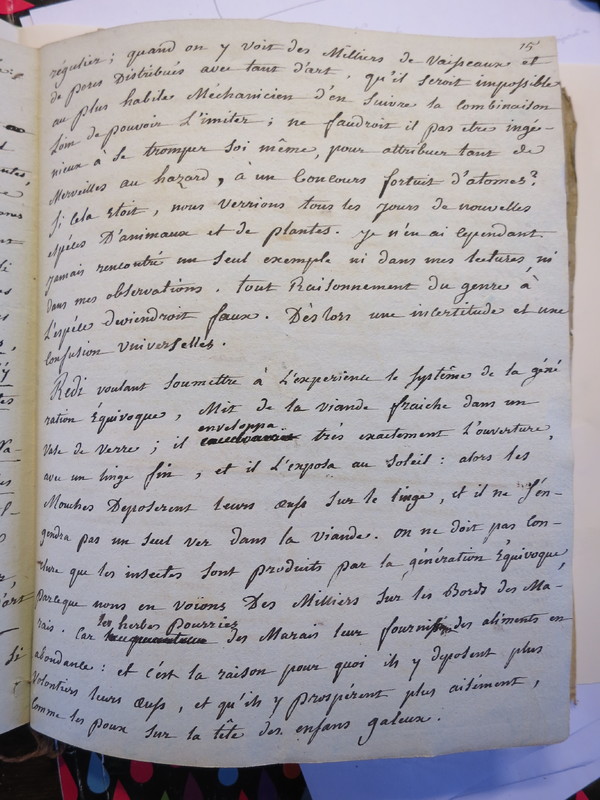 15
régulier; quand on y voit des Milliers de Vaisseaux et
de pores Distribués avec tant d'art, qu'il seroit impossible
au plus habile Méchanicien d'en suivre la Combinaison
Loin de pouvoir L'imiter; ne faudroit il pas etre ingé-
nieux à se tromper soi même, pour attribuer tant de
Merveilles au hazard, à un Concours fortuit d'atomes?
Si Cela étoit, nous verrions tous les jours de nouvelles
espéces D'animaux et de plantes. Je n'en ai Cependant
jamais rencontré un seul exemple ni dans mes lectures, ni
dans mes observations. tout Raisonnement du genre à
L'espéce deviendroit faux. Dès lors une incertitude et une
Confusion Universelles.
Redi voulant soumettre à L'experience le systême de la géné
ration Équivoque, Mit de la viande fraiche dans un
Vase de verre; il enveloppa très exactement L'ouverture,
avec un linge fin, et il L'exposa au soleil: alors les
Mouches Deposerent leurs œufs sur le linge, et il ne s'en-
gendra pas un seul ver dans la viande. on ne doit pas Con-
clure que les insectes sont produits par la génération Équivoque,
parceque nous en voïons Des Milliers sur les Bords des Ma-
rais. Car les herbes Pourries des Marais leur fournissent des aliments en
abondance: et c'est la raison pour quoi ils y deposent plus
Volontiers leurs œufs, et qu'ils y prospérent plus aisément,
Comme les poux sur la tête des enfans galeux.